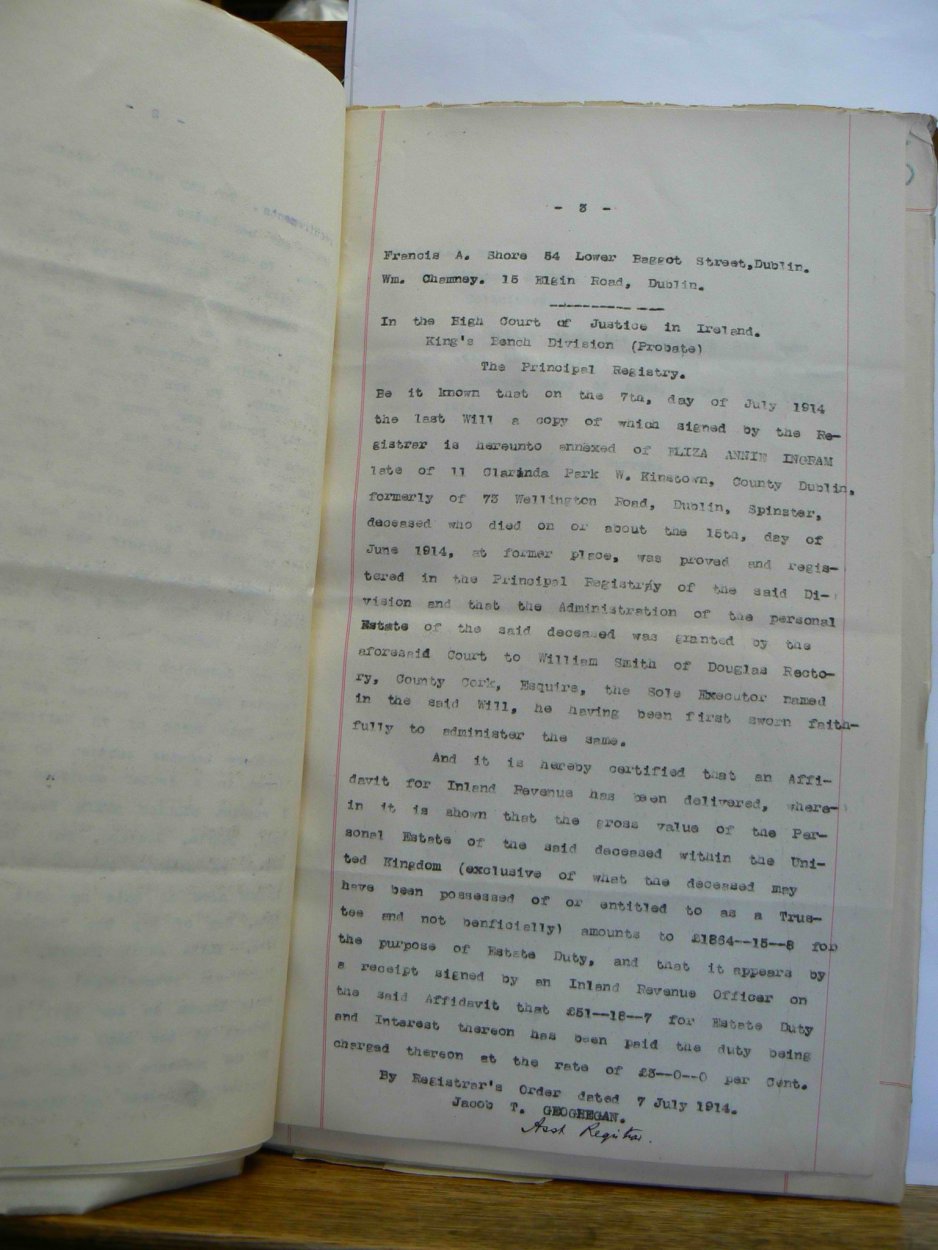 - 3 -
Francis A. Shore 54 Lower Baggot Street,Dublin.
Wm. Chamney. 15 Elgin Road, Dublin.
In the High Court of Justice in Ireland.
King's Bench Division (Probate)
The Principal Registry.
Be it known that on the 7th, day of July 1914
the last Will a copy of which signed by the Re-
gistrar is hereunto annexed of ELIZA ANNIE INGRAM
late of 11 Clarinda Park W. Kinstown, County Dublin,
formerly of 73 Wellington Road, Dublin, Spinster,
deceased who died on or about the 15th, day of
June 1914, at former place, was proved and regis-
tered in the Principal Registry of the said Di-
vision and that the Administration of the personal
Estate of the said deceased was granted by the
aforesaid Court to William Smith of Douglas Recto-
ry, County Cork, Esquire, the Sole Executor named
in the said Will, he having been first sworn faith-
fully to administer the same.
And it is hereby certified that an Affi-
davit for Inland Revenue has been delivered, where-
in it is shown that the gross value of the Per-
sonal Estate of the said deceased within the Uni-
ted Kingdom (exclusive of what the deceased may
have been possessed of or entitled to as a Trus-
tee and not benficially) amounts to £1864--15--8 for
the purpose of Estate Duty, and that it appears by
a receipt signed by an Inland Revenue Officer on
the said Affidavit that £51--18--7 for Estate Duty
and Interest thereon has been paid the duty being
charged thereon at the rate of £3--0--0 per Cent.
By Registrar's Order dated 7 July 1914.
Jacob T. GEOGHEGAN.
Asst Registrar.